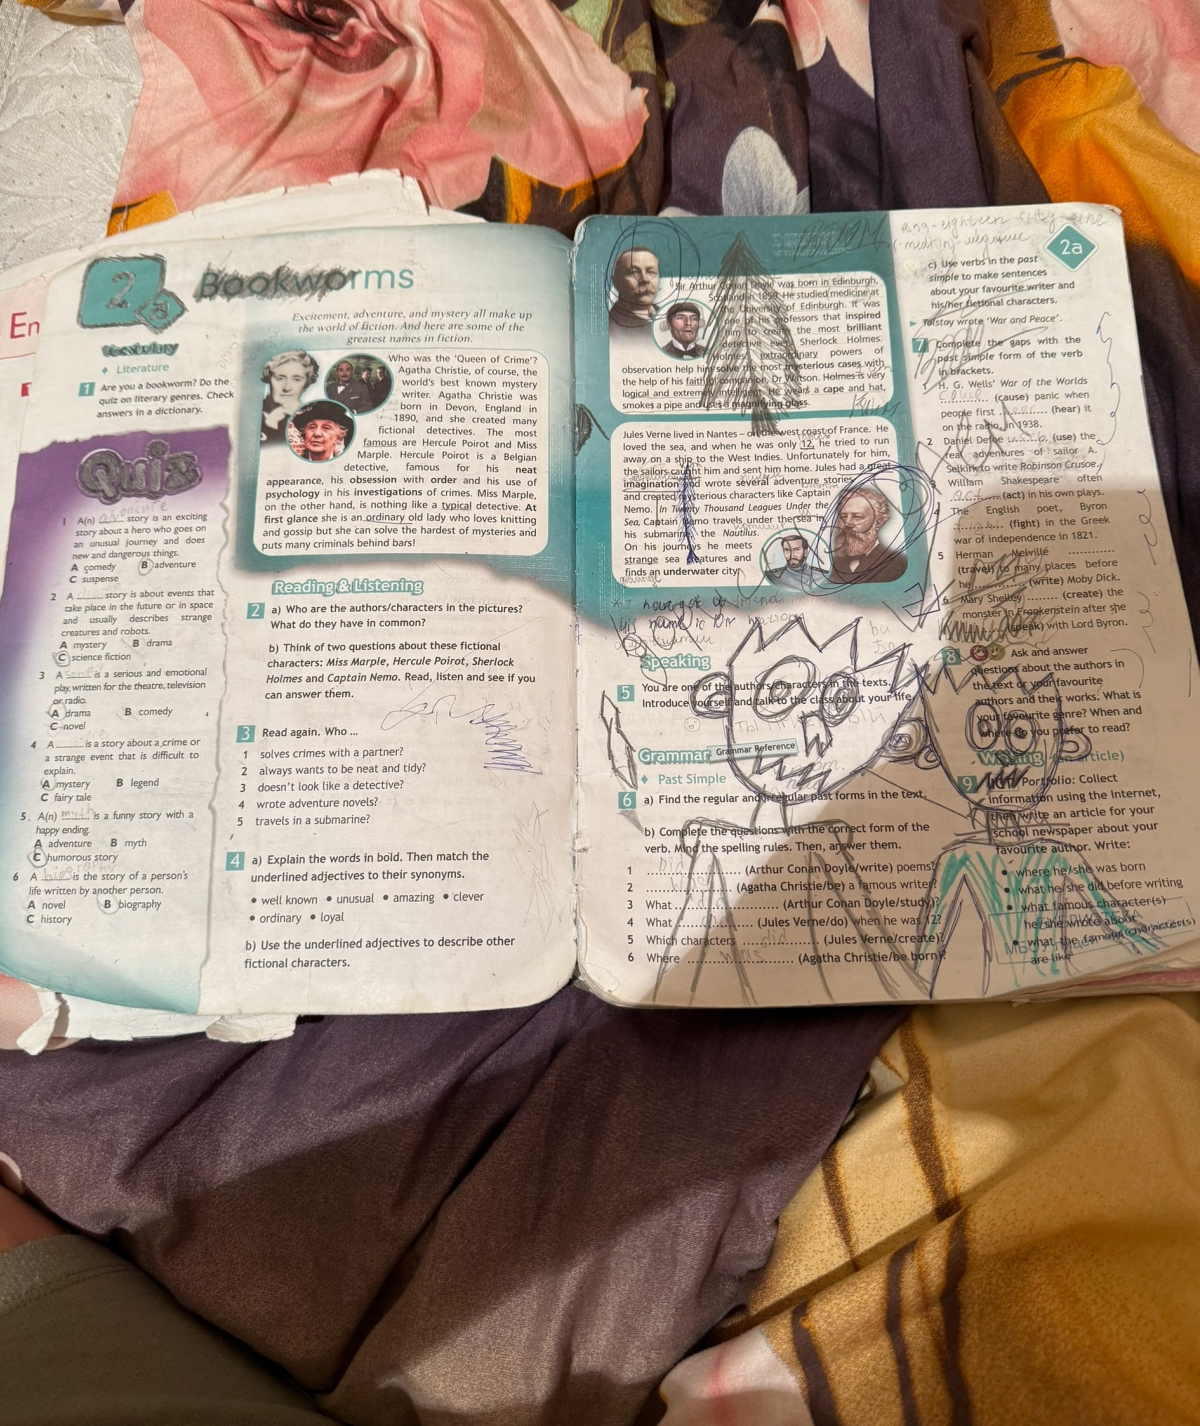 En
2
a
Bookworms
Vocabulary
♦ Literature
1 Are you a bookworm? Do the
quiz on literary genres. Check
answers in a dictionary.
Quiz
1 A(n) story is an exciting
story about a hero who goes on
an unusual journey and does
new and dangerous things.
A comedy B adventure
C suspense
2 A .......... story is about events that
take place in the future or in space
and usually describes strange
creatures and robots.
A mystery B drama
C science fiction
3 A is a serious and emotional
play, written for the theatre, television
or radio.
A drama B comedy
C novel
4 A .......... is a story about a crime or
a strange event that is difficult to
explain.
A mystery B legend
C fairy tale
5 A(n) is a funny story with a
happy ending.
A adventure B myth
C humorous story
6 A is the story of a person's
life written by another person.
A novel B biography
C history
Excitement, adventure, and mystery all make up
the world of fiction. And here are some of the
greatest names in fiction.
Who was the 'Queen of Crime'?
Agatha Christie, of course, the
world's best known mystery
writer. Agatha Christie was
born in Devon, England in
1890, and she created many
fictional detectives. The most
famous are Hercule Poirot and Miss
Marple. Hercule Poirot is a Belgian
detective, famous for his neat
appearance, his obsession with order and his use of
psychology in his investigations of crimes. Miss Marple,
on the other hand, is nothing like a typical detective. At
first glance she is an ordinary old lady who loves knitting
and gossip but she can solve the hardest of mysteries and
puts many criminals behind bars!
Reading & Listening
2 a) Who are the authors/characters in the pictures?
What do they have in common?
b) Think of two questions about these fictional
characters: Miss Marple, Hercule Poirot, Sherlock
Holmes and Captain Nemo. Read, listen and see if you
can answer them.
3 Read again. Who ...
1 solves crimes with a partner?
2 always wants to be neat and tidy?
3 doesn't look like a detective?
4 wrote adventure novels?
5 travels in a submarine?
4 a) Explain the words in bold. Then match the
underlined adjectives to their synonyms.
• well known • unusual • amazing • clever
• ordinary • loyal
b) Use the underlined adjectives to describe other
fictional characters.
Sir Arthur Conan Doyle was born in Edinburgh,
Scotland in 1859. He studied medicine at
the University of Edinburgh. It was
one of his professors that inspired
him to create the most brilliant
detective ever, Sherlock Holmes.
Holmes' extraordinary powers of
observation help him solve the most mysterious cases with
the help of his faithful companion, Dr Watson. Holmes is very
logical and extremely intelligent. He wears a cape and hat,
smokes a pipe and uses a magnifying glass.
Jules Verne lived in Nantes – on the west coast of France. He
loved the sea, and when he was only 12, he tried to run
away on a ship to the West Indies. Unfortunately for him,
the sailors caught him and sent him home. Jules had a great
imagination and wrote several adventure stories
and created mysterious characters like Captain
Nemo. In Twenty Thousand Leagues Under the
Sea, Captain Nemo travels under the sea in
his submarine, the Nautilus.
On his journeys he meets
strange sea creatures and
finds an underwater city.
Speaking
5 You are one of the authors/characters in the texts.
Introduce yourself and talk to the class about your life.
Grammar Grammar Reference
♦ Past Simple
6 a) Find the regular and irregular past forms in the text.
b) Complete the questions with the correct form of the
verb. Mind the spelling rules. Then, answer them.
1 Did (Arthur Conan Doyle/write) poems?
2 .......... (Agatha Christie/be) a famous writer?
3 What .......... (Arthur Conan Doyle/study)?
4 What .......... (Jules Verne/do) when he was 12?
5 Which characters did (Jules Verne/create)?
6 Where was (Agatha Christie/be born)?
2a
c) Use verbs in the past
simple to make sentences
about your favourite writer and
his/her fictional characters.
▶ Tolstoy wrote 'War and Peace'.
7 Complete the gaps with the
past simple form of the verb
in brackets.
1 H. G. Wells' War of the Worlds
(cause) panic when
people first (hear) it
on the radio, in 1938.
2 Daniel Defoe (use) the
real adventures of sailor A.
Selkirk to write Robinson Crusoe.
3 William Shakespeare often
(act) in his own plays.
4 The English poet, Byron
(fight) in the Greek
war of independence in 1821.
5 Herman Melville ..........
(travel) to many places before
he .......... (write) Moby Dick.
6 Mary Shelley .......... (create) the
monster in Frankenstein after she
(speak) with Lord Byron.
8 Ask and answer
questions about the authors in
the text or your favourite
authors and their works. What is
your favourite genre? When and
where do you prefer to read?
Writing (an article)
9 Portfolio: Collect
information using the Internet,
then write an article for your
school newspaper about your
favourite author. Write:
• where he/she was born
• what he/she did before writing
• what famous character(s)
he/she wrote about
• what the famous character(s)
are like